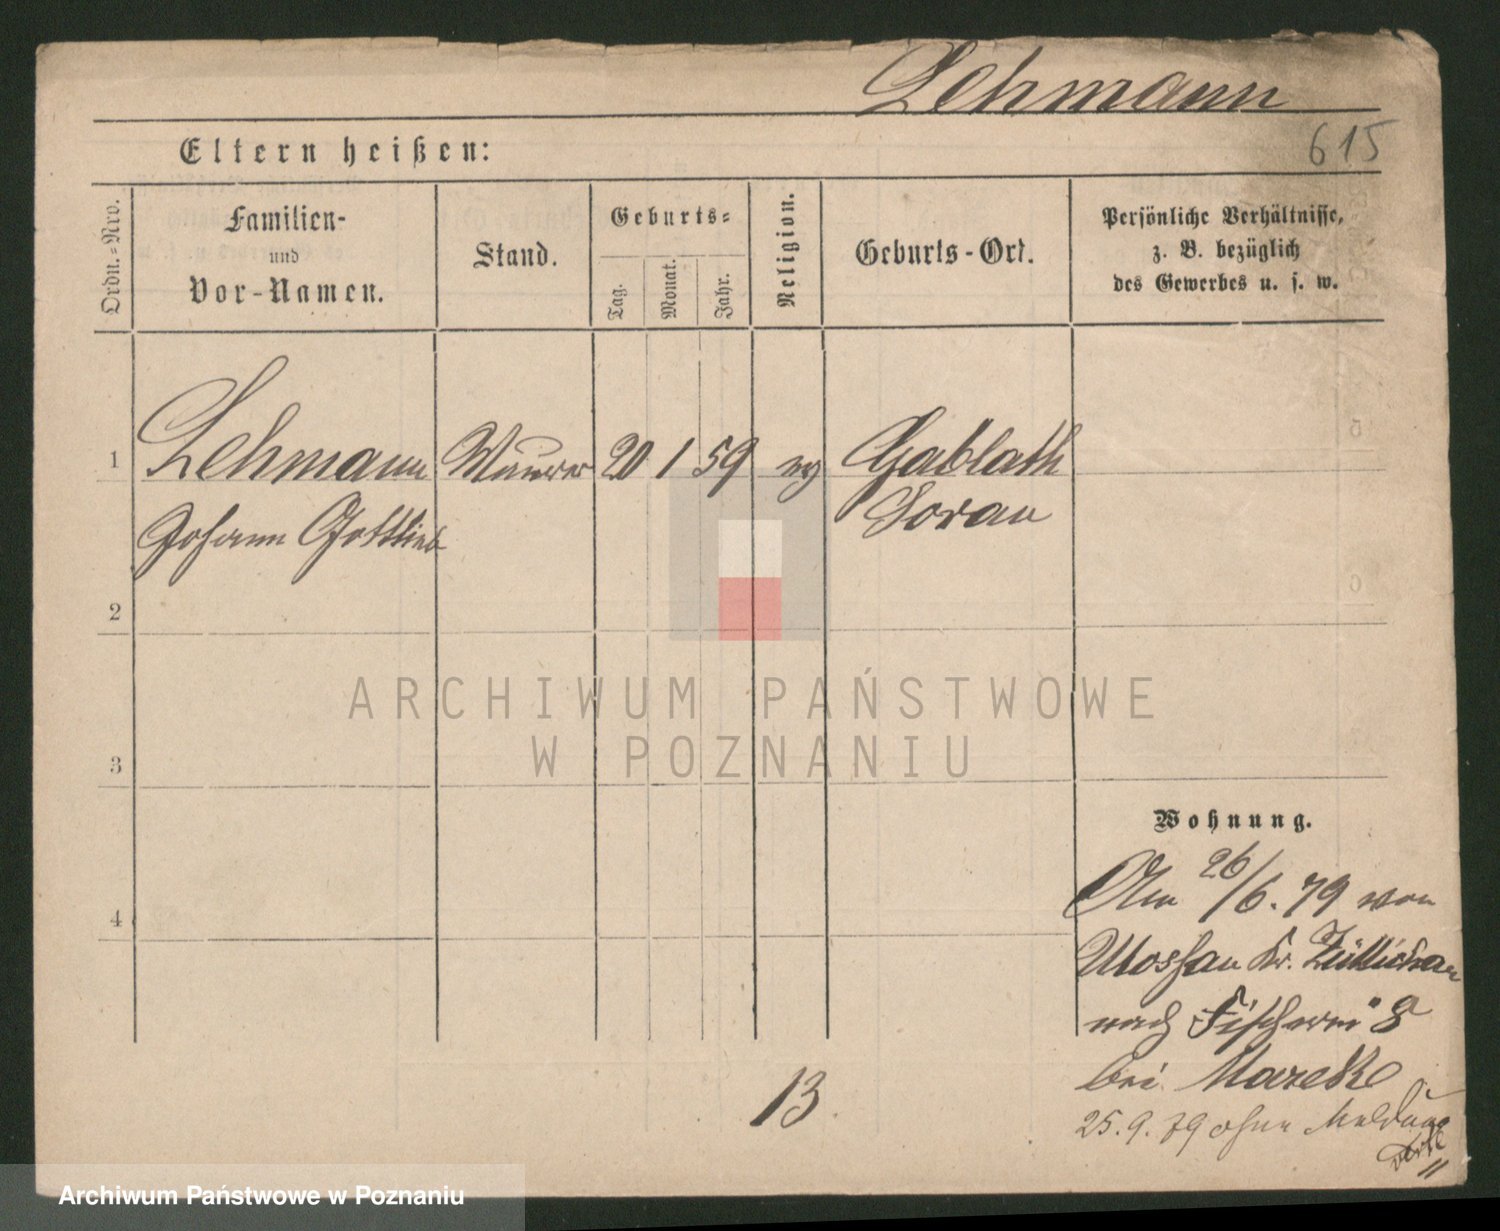 Lehmann
615
Eltern heißen:
Ordn.-Nro.
Familien-
und
Vor-Namen.
Stand.
Geburts-
Tag.
Monat.
Jahr.
Religion.
Geburts-Ort.
Persönliche Verhältnisse,
z. B. bezüglich
des Gewerbes u. s. w.
1 Lehmann Maurer 20 1 59 ev Gablath
Johann Gottlieb
Sorau
2
3
4
Wohnung.
Am 26/6. 79 von
Mossau Kr. Züllichau
nach Fischerei 8
bei Mareske
25.9.79 ohne Meldung
13
ARCHIWUM PAŃSTWOWE
W POZNANIU
Archiwum Państwowe w Poznaniu